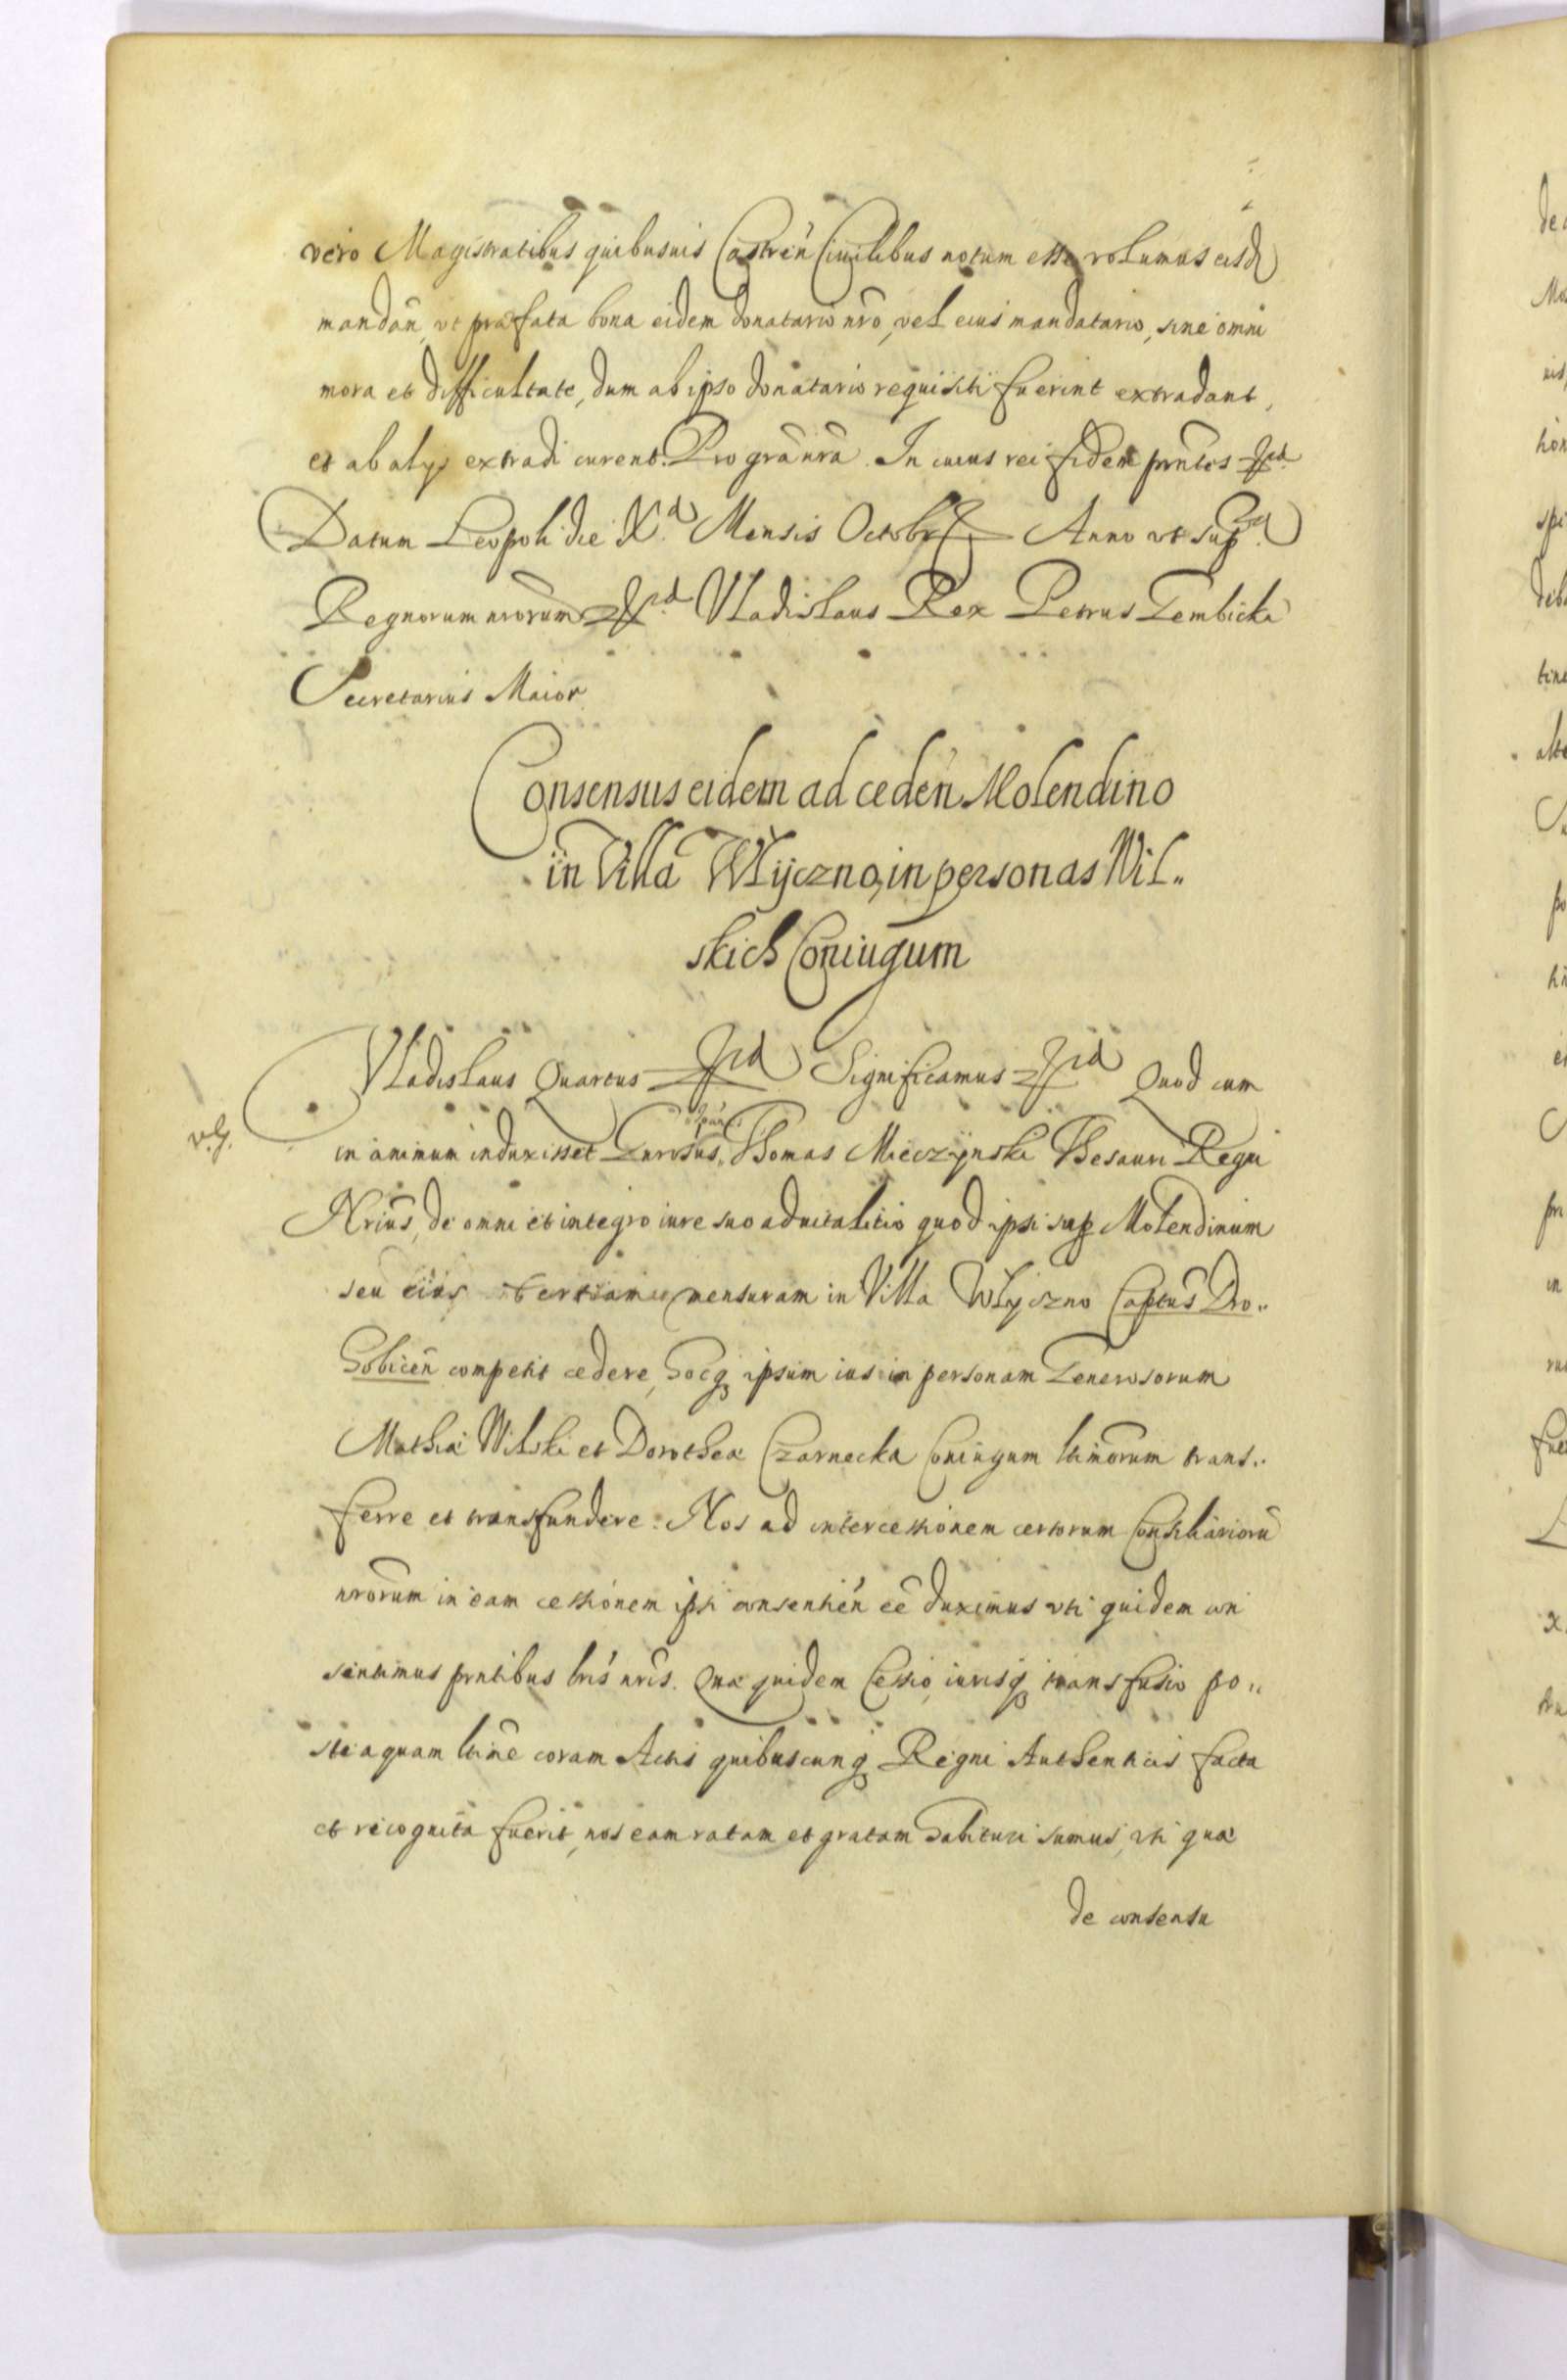 vero Magistratibus quibusuis Castreń Ciuilibus notum esse volumus eisd
mandań, vt præfata bona eidem donatario nrõ, vel eius mandatario, sine omni
mora et difficultate, dum ab ipso donatario requisiti fuerint extradant,
et ab alijs extradi curent. Pro grã nrã. In cuius rei fidem prñtes
Datum Leopoli die X.ᵃ Mensis Octobr Anno vt sup.ᵃ
Regnorum nrorum Vladislaus Rex Petrus Gembicki
Secretarius Maior
Consensus eidem ad cedeń Molendino
in Villa Włyczno, in personas Wil„
skich Coniugum
Vladislaus Quartus Significamus Quod cum
in animum induxisset Gnrosus Thomas Mieczÿnski Thesauri Regni
Nrius, de omni et integro iure suo aduitalitio quod ipsi sup Molendinum
seu eius tertiam mensuram in Villa Włyczno Captus Dro„
hobiceń competit cedere, hocq ipsum ius in personam Generosorum
Mathiæ Wilski et Dorotheæ Czarnecka Coniugum ltimorum trans„
ferre et transfundere. Nos ad intercessionem certorum Consiliarioru
nrorum in eam cessionem ipsi consentień eẽ duximus vti quidem con
sentimus prntibus lris nris. Quæ quidem Cessio, iurisq transfusio po„
steaquam ltime coram Actis quibuscunq Regni Authenticis facta
et recognita fuerit, nos eam ratam et gratam habituri sumus, vti quæ
de consensu